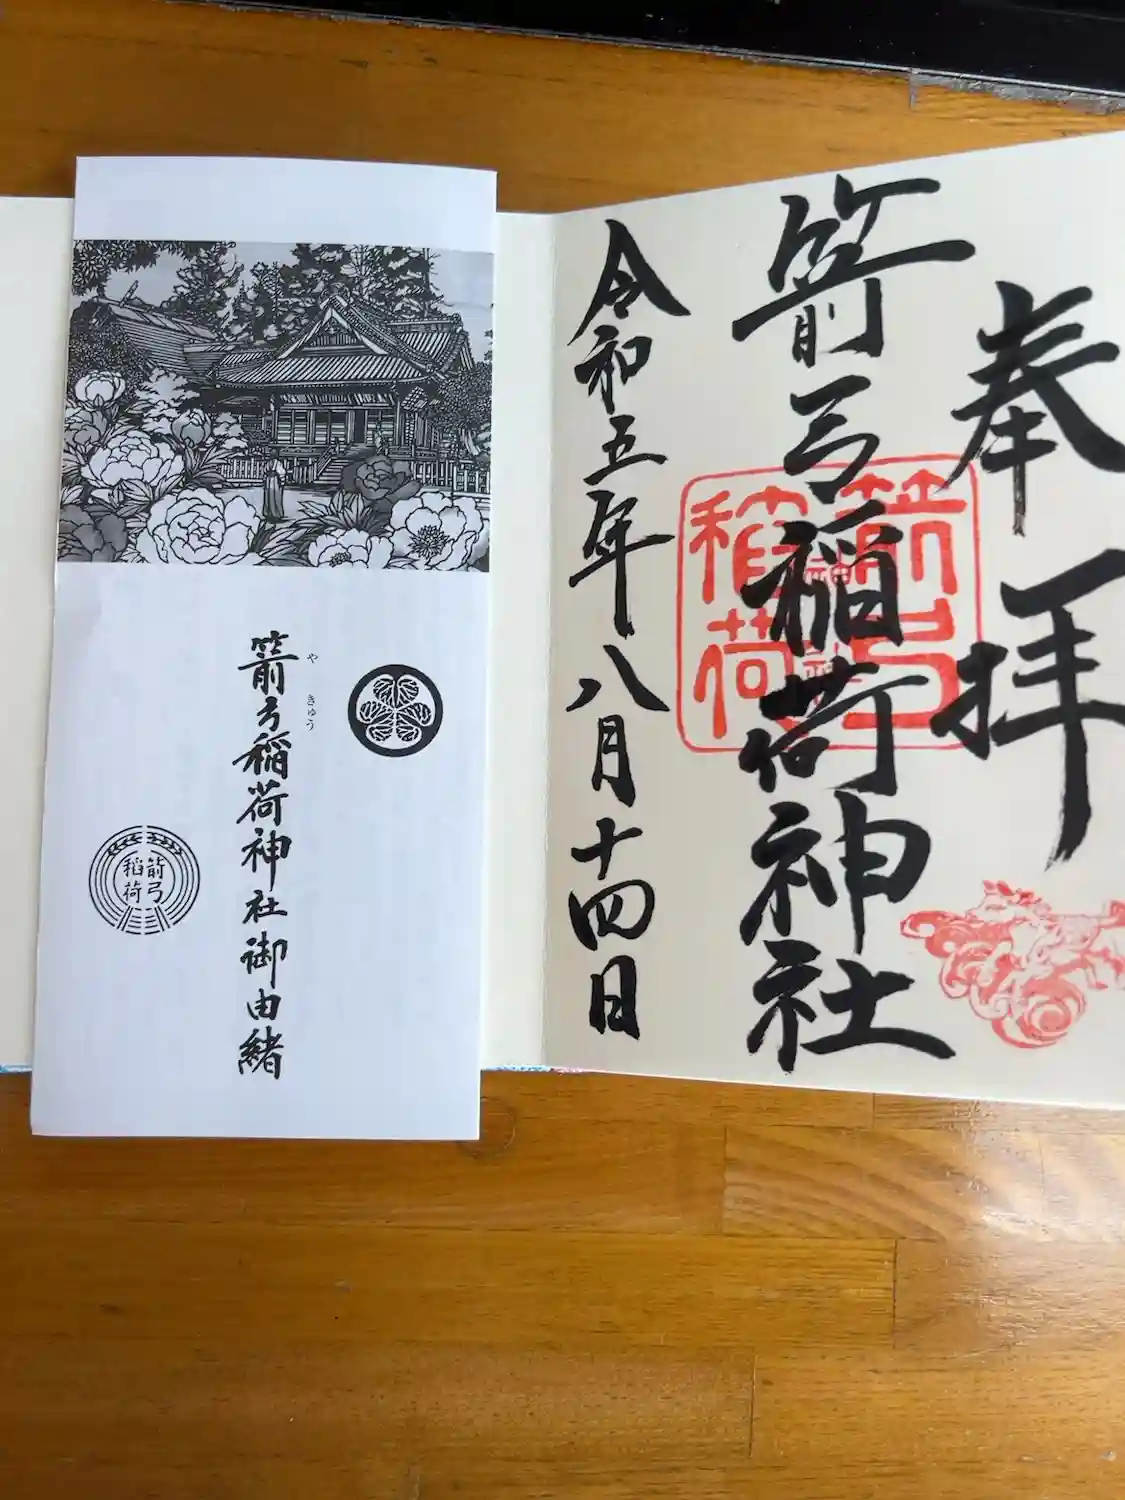 奉拝
箭弓稲荷神社
令和五年八月十四日
箭弓
稲荷
やきゅう
箭弓稲荷神社御由緒
箭弓
稲荷